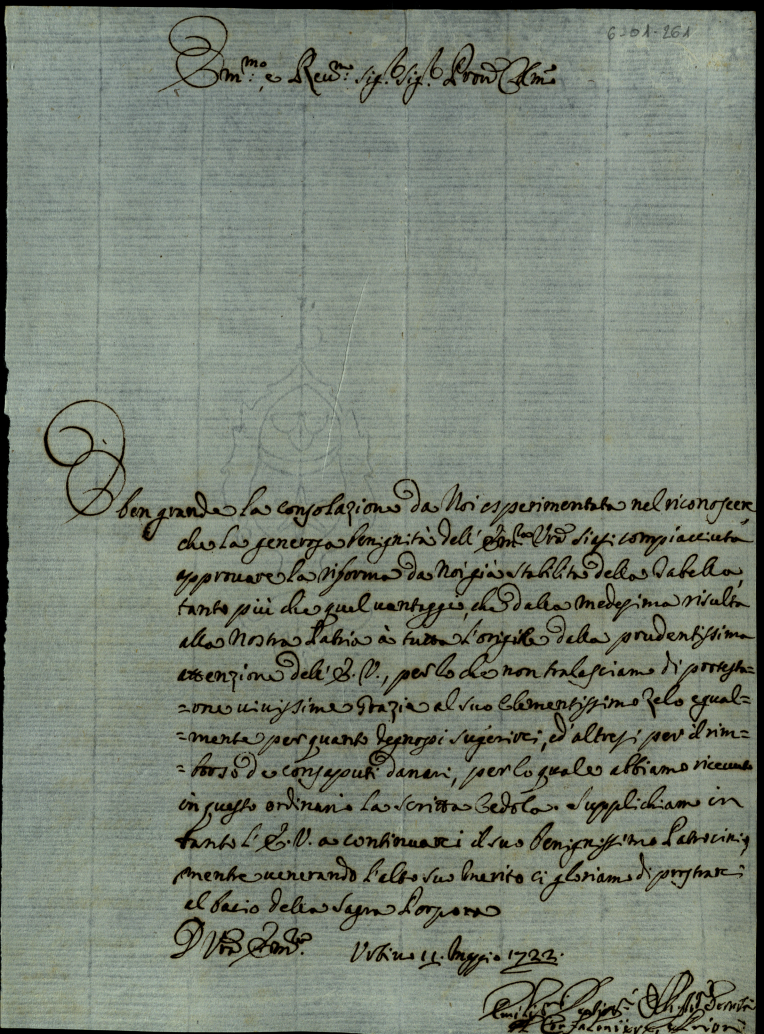 6201-261
Em.mo e Reu.mo Sig.r Sig.r Pron Col.mo
È ben grande la consolazione da Noi esperimentata nel riconoscere
che la generosa benignità dell' Em.za Vra siasi compiacciuta
approuare la riforma da Noi già stabilita della Tabella,
tanto più che quel uantaggio, che dalla medesima risulta
alla Nostra Patria à tutta l'origine dalla prudentissima
attenzione dell' E. V., per lo che non tralasciamo di protesta=
=rne uiuissime Grazie al suo Clementissimo Zelo egual=
=mente per quanto degnossi sugerirci, ed' altresi per il rim=
=borso de consaputi danari, per lo quale abbiamo riceuuto
in questo ordinario la scritta Cedola. Supplichiamo in
tanto l' E. V. a continuarci il suo benignissimo Patrocinio,
mentre uenerando l'alto suo Merito ci gloriamo di prostrarci
al bacio della Sagra Porpora
D Vra Em.za Urbino 11. Maggio 1722.
Gonfaloniere e Priori